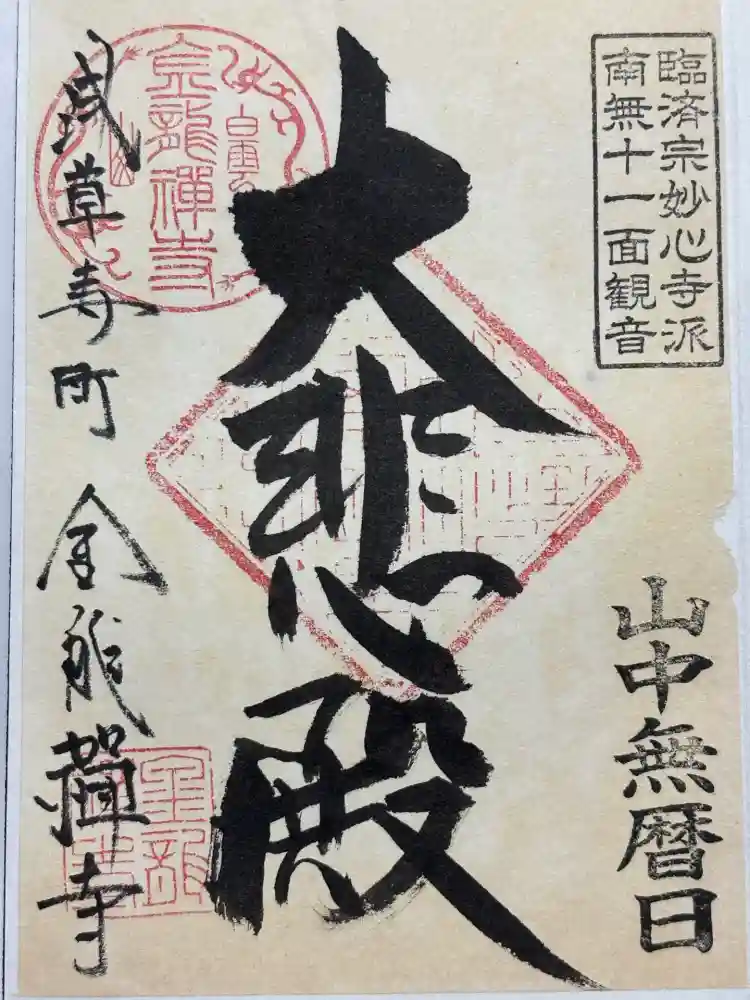 臨済宗妙心寺派
南無十一面観音
山中無暦日
大悲殿
浅草寿町 金龍禅寺
金龍禅寺
白雲
金龍